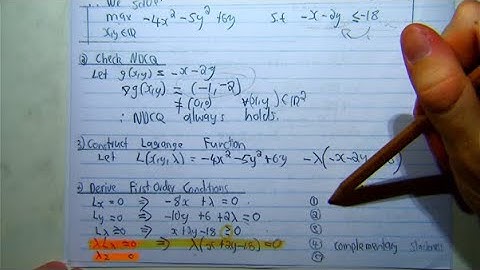 We solve:
max -4x² -5y² +6y   s.t -x-2y ≤ -18
x,y∈ℝ
② Check NDCQ
Let g(x,y) = -x-2y
∇g(x,y) = (-1,-2)
≠ (0,0) ∀(x,y)∈ℝ²
∴ NDCQ always holds.
3) Construct Lagrange Function
Let L(x,y,λ) = -4x²-5y²+6y -λ(-x-2y
Derive First Order Conditions
Lx=0 ⇒ -8x +λ = 0 ①
Ly=0 ⇒ -10y +6 +2λ = 0 ②
Lλ≥0 ⇒ x+2y-18 ≥ 0 ③
λLλ=0 ⇒ λ(x+2y-18)=0 ④ complementary slackness
λ≥ 0